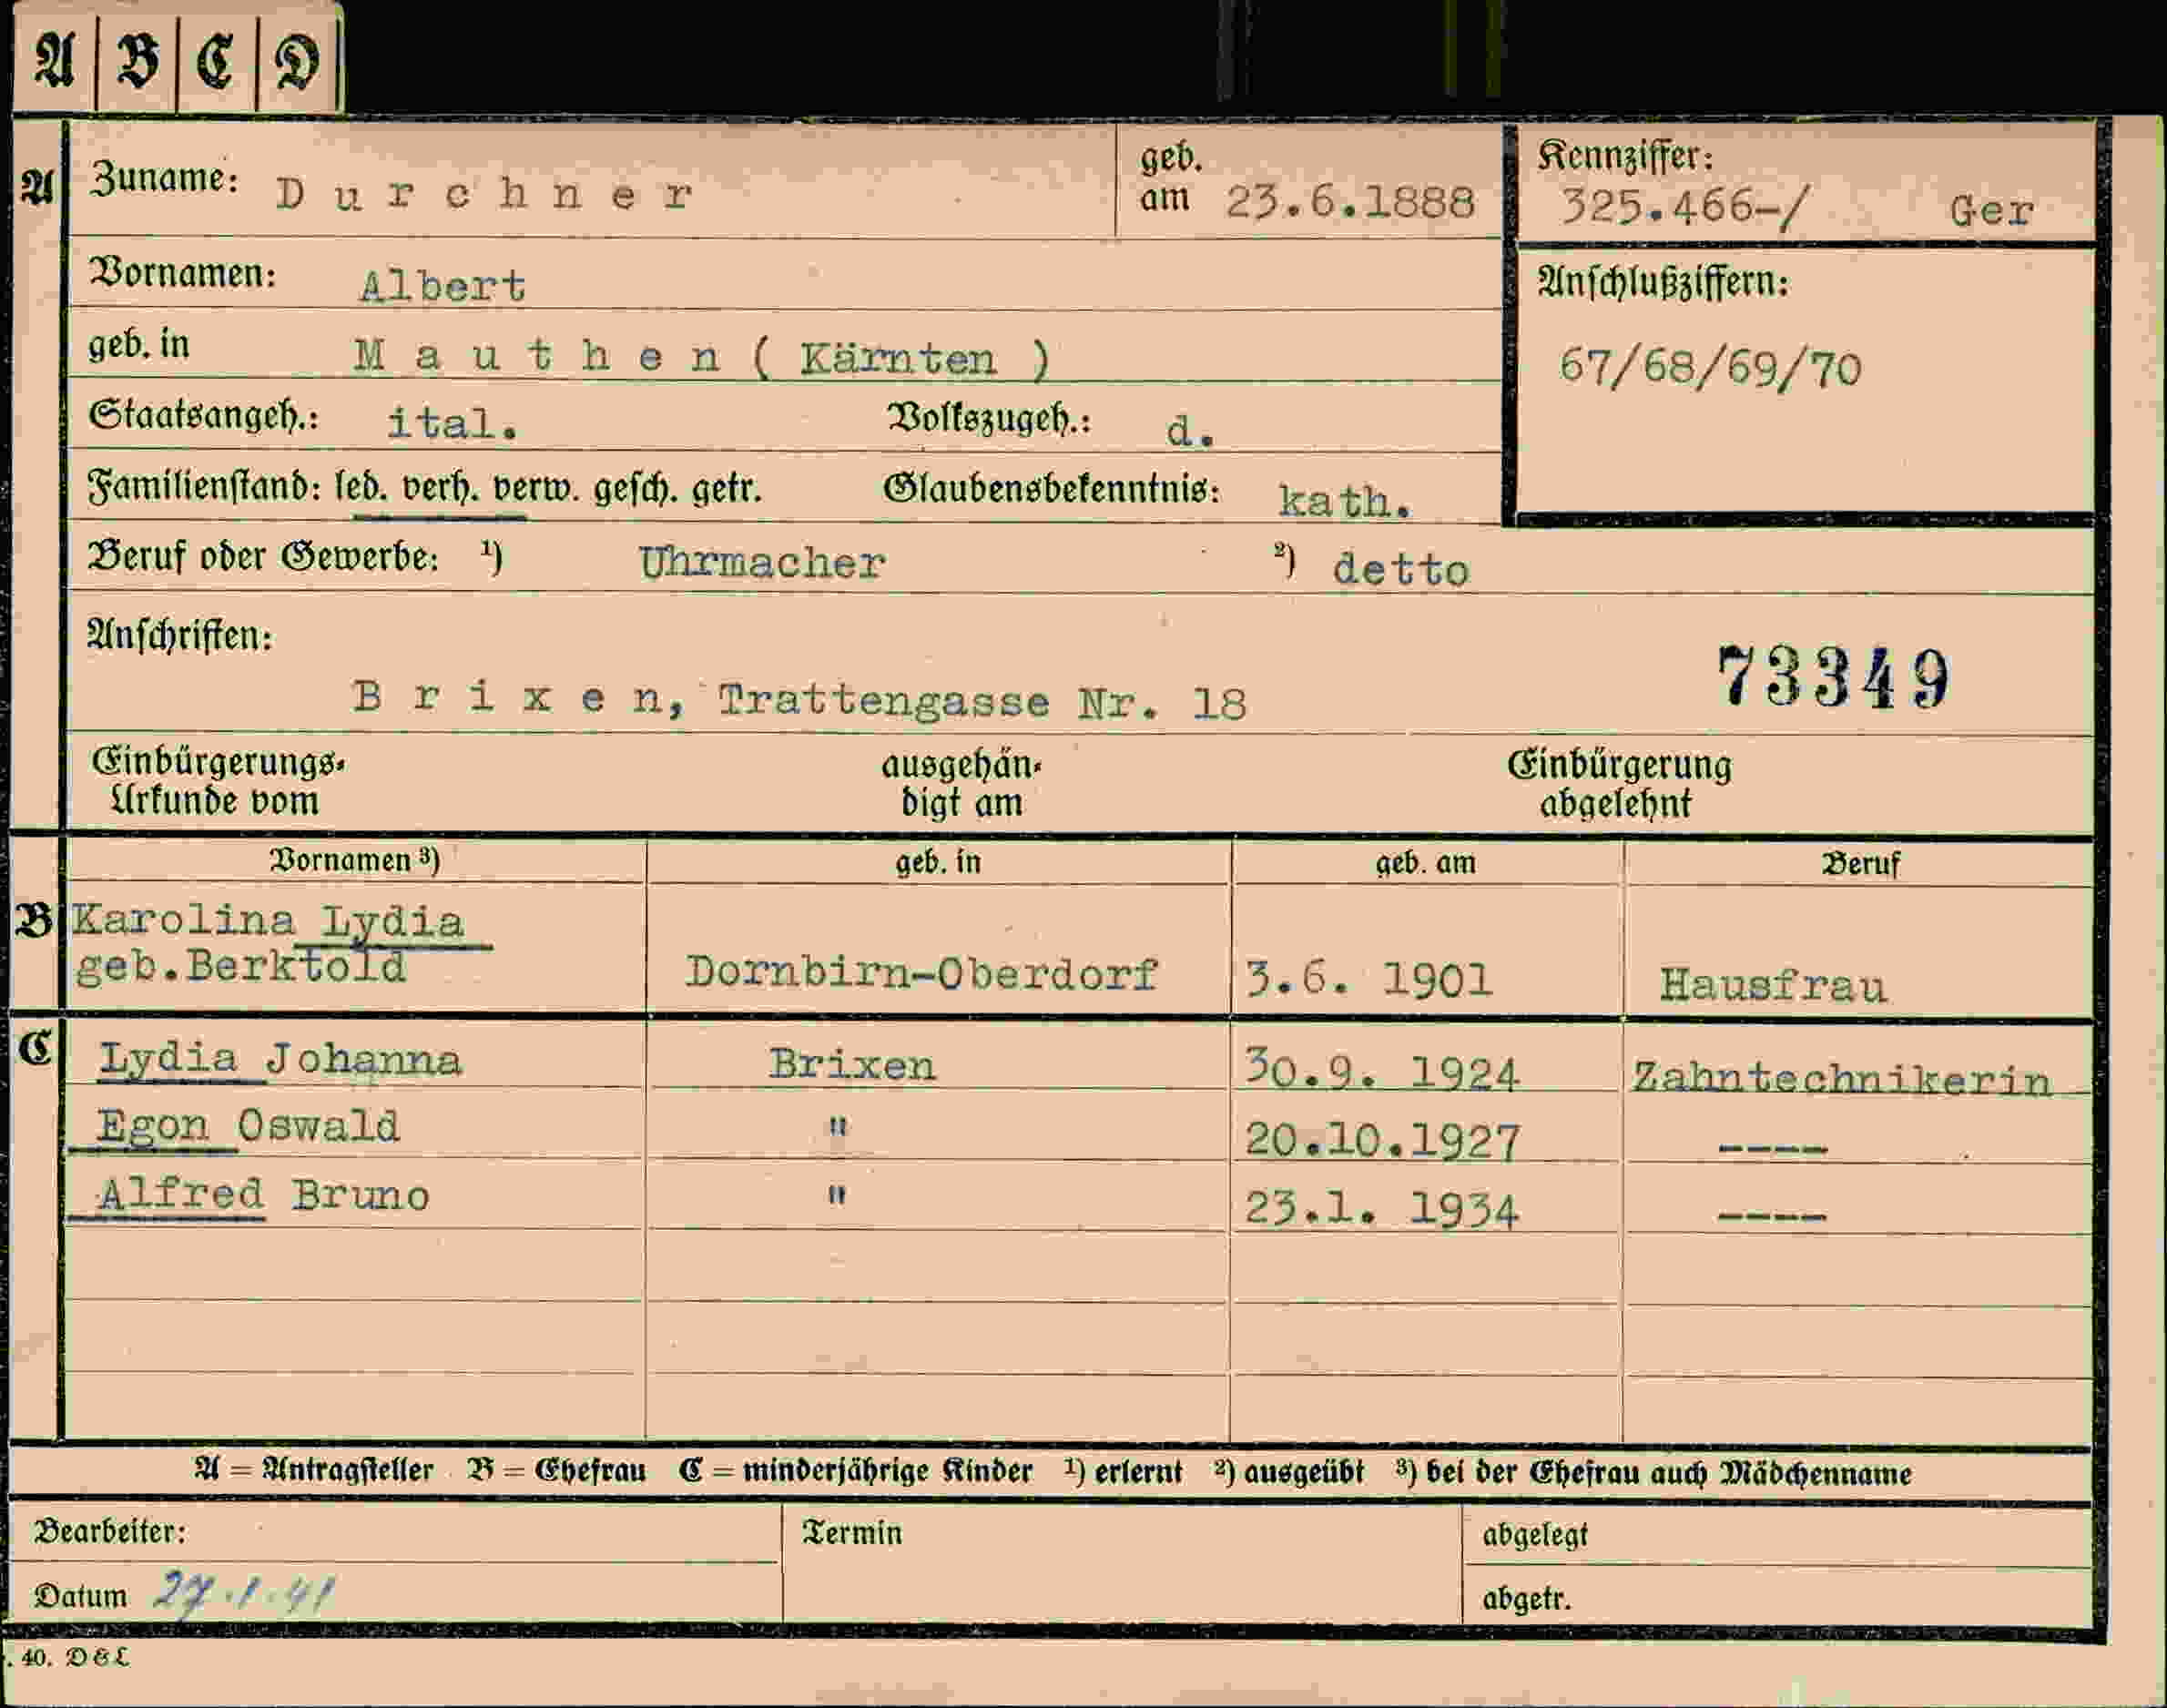 A B C D
A Zuname: Durchner geb. am 23.6.1888 Kennziffer: 325.466-/ Ger
Vornamen: Albert Anschlußziffern:
geb. in Mauthen ( Kärnten ) 67/68/69/70
Staatsangeh.: ital. Volkszugeh.: d.
Familienstand: led. verh. verw. gesch. getr. Glaubensbekenntnis: kath.
Beruf oder Gewerbe: ¹) Uhrmacher ²) detto
Anschriften:
73349
Brixen, Trattengasse Nr. 18
Einbürgerungs- ausgehän- Einbürgerung
Urkunde vom digt am abgelehnt
Vornamen ³) geb. in geb. am Beruf
B Karolina Lydia
geb.Berktold Dornbirn-Oberdorf 3.6. 1901 Hausfrau
C Lydia Johanna Brixen 30.9. 1924 Zahntechnikerin
Egon Oswald " 20.10.1927 ----
Alfred Bruno " 23.1. 1934 ----
A = Antragsteller B = Ehefrau C = minderjährige Kinder ¹) erlernt ²) ausgeübt ³) bei der Ehefrau auch Mädchenname
Bearbeiter: Termin abgelegt
Datum 27.1.41 abgetr.
. 40. D & L